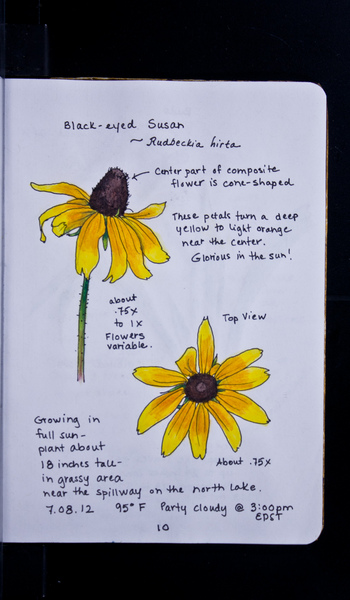 Black-eyed Susan
~ Rudbeckia hirta
Center part of composite
flower is cone-shaped
These petals turn a deep
yellow to light orange
near the center.
Glorious in the sun!
about
.75x
to 1x
Flowers
variable.
Top View
About .75x
Growing in
full sun-
plant about
18 inches tall-
in grassy area
near the spillway on the north lake.
7.08.12 95° F Party cloudy @ 3:00pm
EDST
10